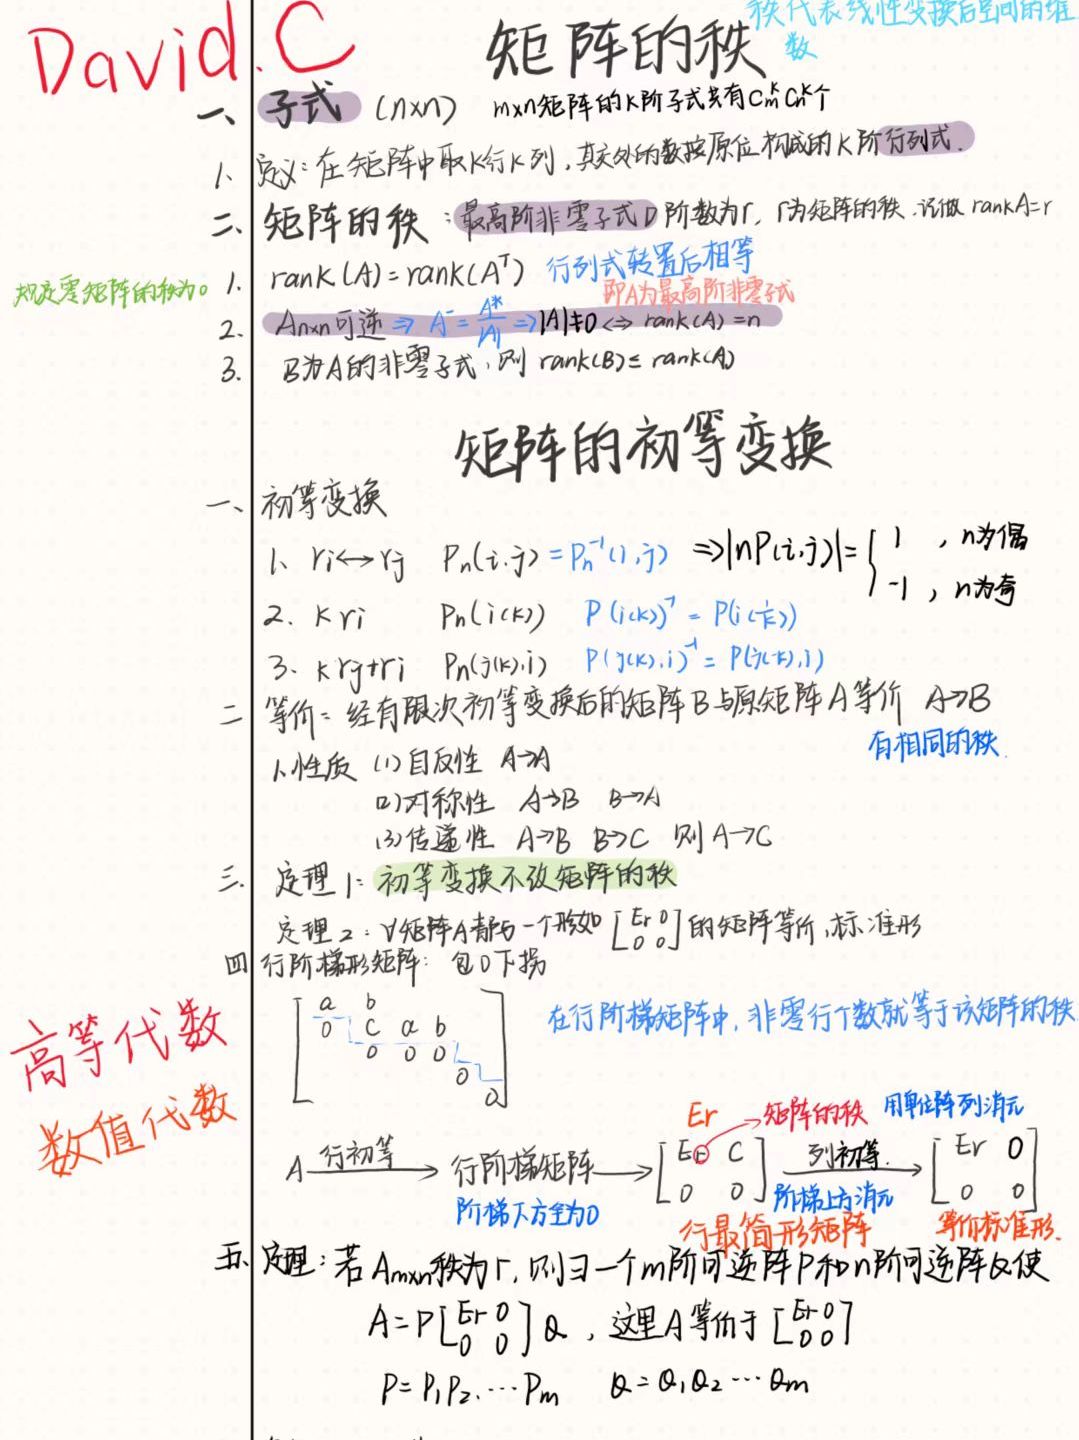 David.C
秩代表线性变换后空间的维
数
矩阵的秩
一、子式 (n×n) m×n矩阵的k阶子式共有CₘᵏCₙᵏ个
1、定义:在矩阵中取k行k列,其交处的数按原位构成的k阶行列式.
二、矩阵的秩:最高阶非零子式D阶数为r, r为矩阵的秩.记做 rankA=r
规定零矩阵的秩为0
1. rank(A)=rank(Aᵀ) 行列式转置后相等
即A为最高阶非零子式
2. Aₙₓₙ可逆 ⇒ A⁻=A*/|A| ⇒ |A|≠0 ⇔ rank(A)=n
3. B为A的非零子式,则 rank(B)≤rank(A)
矩阵的初等变换
一、初等变换
1、ri↔rj Pn(i,j)=Pn⁻¹(i,j) ⇒|nP(i,j)|={ 1 , n为偶
-1 , n为奇
2. kri Pn(i(k)) P(i(k))⁻¹=P(i(1/k))
3. krj+ri Pn(j(k),i) P(j(k),i)⁻¹=P(j(-k),i)
二 等价:经有限次初等变换后的矩阵B与原矩阵A等价 A→B
有相同的秩
1.性质 (1)自反性 A→A
(2)对称性 A→B B→A
(3)传递性 A→B B→C 则A→C
三. 定理1:初等变换不改矩阵的秩
定理2:∀矩阵A都与一个形如[Er 0; 0 0]的矩阵等价,标准形
四 行阶梯形矩阵: 包0下拐
a b
0 c a b
0 0 0
0
0
在行阶梯矩阵中,非零行个数就等于该矩阵的秩
高等代数
数值代数
Er → 矩阵的秩 用单位阵列消元
A 行初等→ 行阶梯矩阵 → [Er C; 0 0] 列初等.→ [Er 0; 0 0]
阶梯下方全为0 阶梯上方消元
行最简形矩阵 等价标准形.
五. 定理:若Aₘₓₙ秩为r,则∃一个m阶可逆阵P和n阶可逆阵Q,使
A=P[Er 0; 0 0]Q ,这里A等价于[Er 0; 0 0]
P=P₁P₂…Pₘ Q=Q₁Q₂…Qₘ